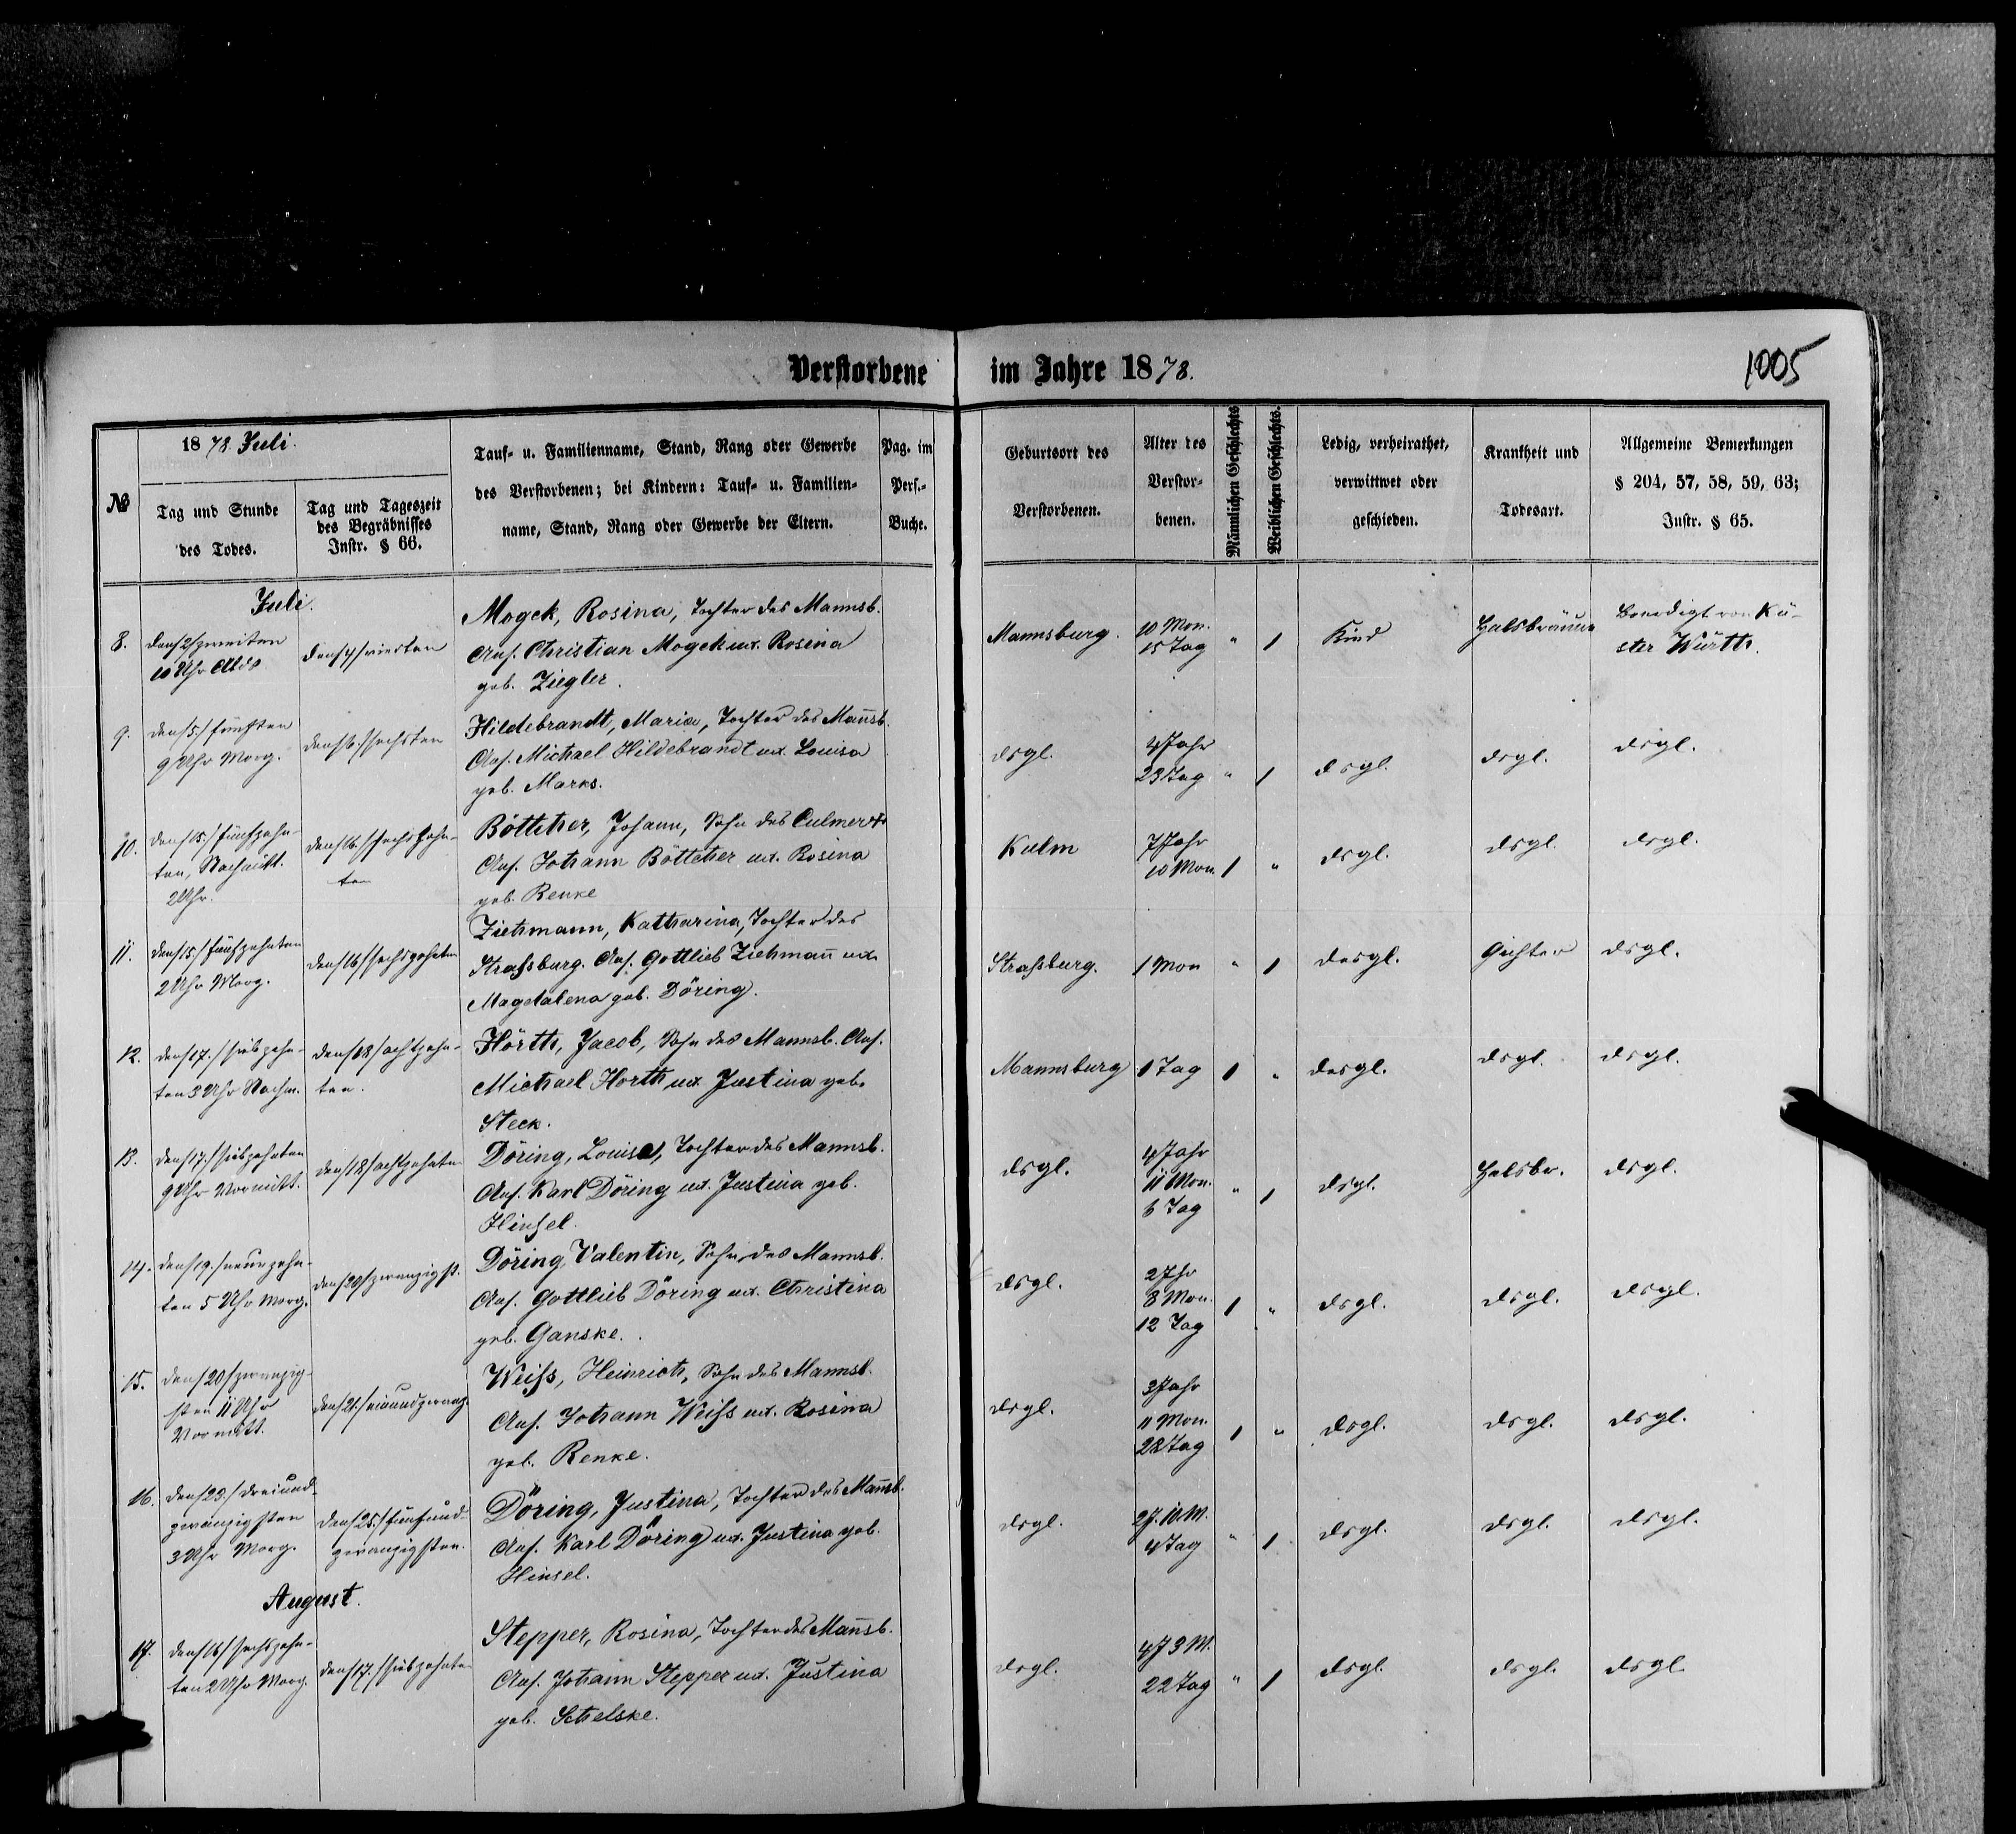 Verstorbene im Jahre 1878.
1005
№
1878. Juli.
Tag und Stunde
des Todes.
Tag und Tageszeit
des Begräbnisses
Instr. § 66.
Tauf- u. Familienname, Stand, Rang oder Gewerbe
des Verstorbenen; bei Kindern: Tauf- u. Familien-
name, Stand, Rang oder Gewerbe der Eltern.
Pag. im
Pers.-
Buche.
Geburtsort des
Verstorbenen.
Alter des
Verstor-
benen.
Männlichen Geschlechts
Weiblichen Geschlechts.
Ledig, verheirathet,
verwittwet oder
geschieden.
Krankheit und
Todesart.
Allgemeine Bemerkungen
§ 204, 57, 58, 59, 63;
Instr. § 65.
Juli.
8.
den 2/ zweiten
10 Uhr Abds
den 4/ vierten
Mogck, Rosina, Tochter des Mannsb.
Ans. Christian Mogck ud. Rosina
geb. Ziegler.
Mannsburg.
10 Mon.
15 Tag
" 1
Kind
Halsbräune
Beerdigt von Kü-
ster Würth.
9.
den 5./ fünften
9 Uhr Morg.
den 6./ sechsten
Hildebrandt, Maria, Tochter des Mañsb.
Ans. Michael Hildebrandt ud. Louisa
geb. Marks.
dsgl.
4 Jahr
23 Tag
" 1
dsgl.
dsgl.
dsgl.
10.
den 15./ fünfzehn-
ten, Nachmitt.
2 Uhr.
den 16./ sechszehn-
ten
Böttcher, Johann, Sohn des Culmer
Ans. Johann Böttcher ud. Rosina
geb. Renke
Kulm
7 Jahr
10 Mon.
1 "
dsgl.
dsgl.
dsgl.
11.
den 15/ fünfzehnten
2 Uhr Morg.
den 16/ sechszehnten
Ziehmann, Katharina, Tochter des
Straßburg. Ans. Gottlieb Ziehmañ ud.
Magdalena geb. Döring.
Straßburg.
1 Mon
" 1
desgl.
Gichter
dsgl.
12.
den 17./ siebzehn-
ten 3 Uhr Nachm.
den 18/ achtzehn-
ten.
Hörth, Jacob, Sohn des Mannsb. Ans.
Michael Horth ud. Justina geb.
Steck.
Mannsburg
1 Tag
1 "
desgl.
dsgl.
dsgl.
13.
den 17./ siebzehnten
9 Uhr Vormitt.
den 18/ achtzehnten
Döring, Louise, Tochter des Mannsb.
Ans. Karl Döring ud. Justina geb.
Hinsel.
dsgl.
4 Jahr
11 Mon.
6 Tag
" 1
dsgl.
Halsbr.
dsgl.
14.
den 19./ neunzehn-
ten 5 Uhr Morg.
den 20/ zwanzigst.
Döring, Valentin, Sohn des Mannsb.
Ans. Gottlieb Döring ud. Christina
geb. Ganske.
dsgl.
2 Jhr
8 Mon.
12 Tag
1 "
dsgl.
dsgl.
dsgl.
15.
den 20/ zwanzig-
sten 11 Uhr
Vormitt.
den 21./ einundzwanz.
Weiß, Heinrich, Sohn des Mannsb.
Ans. Johann Weiß ud. Rosina
geb. Renke.
dsgl.
3 Jahr
11 Mon.
22 Tag
1 "
dsgl.
dsgl.
dsgl.
16.
den 23./ dreiund-
zwanzigsten
3 Uhr Morg.
den 25./ fünfund-
zwanzigsten.
Döring, Justina, Tochter des Mañsb.
Ans. Karl Döring ud. Justina geb.
Hinsel.
dsgl.
2 J. 10 M.
4 Tag
" 1
dsgl.
dsgl.
dsgl.
August.
17.
den 16/ sechszehn-
ten 2 Uhr Morg.
den 17./ siebzehnten
Stepper, Rosina, Tochter des Mañsb.
Ans. Johann Stepper ud. Justina
geb. Schelske.
dsgl.
4 J 3 M.
22 Tag
" 1
dsgl.
dsgl.
dsgl.